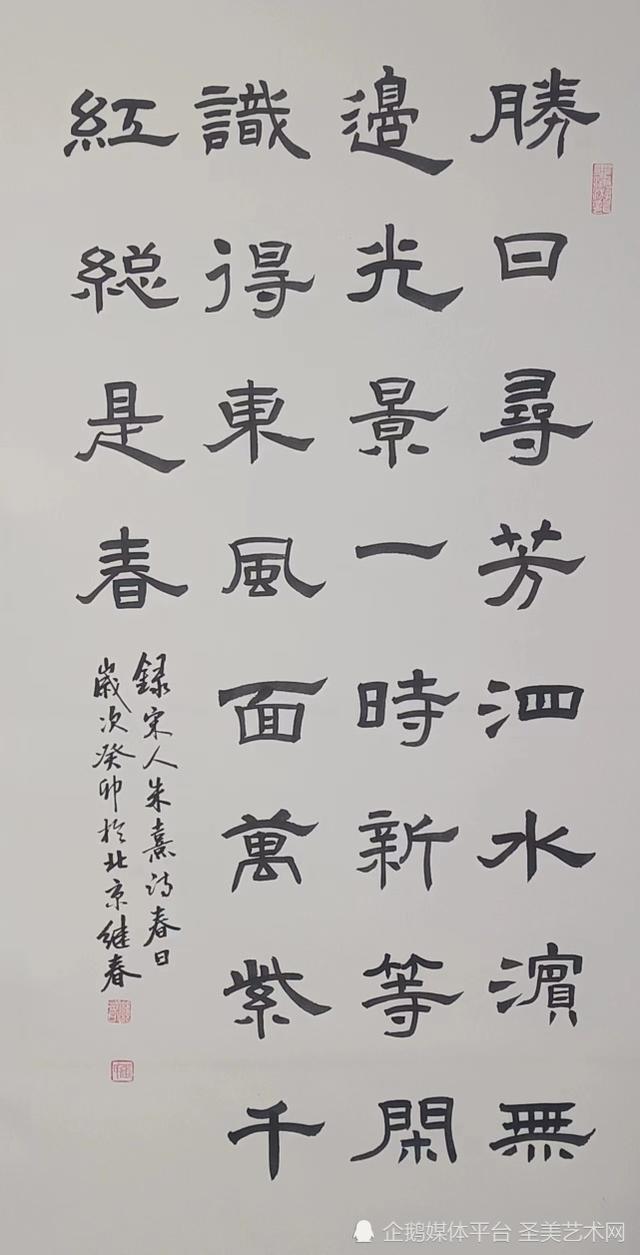 勝日尋芳泗水濱無
邊光景一時新等閑
識得東風面萬紫千
紅総是春
録宋人朱熹诗春日
歲次癸卯於北京继春
企鹅媒体平台 圣美艺术网